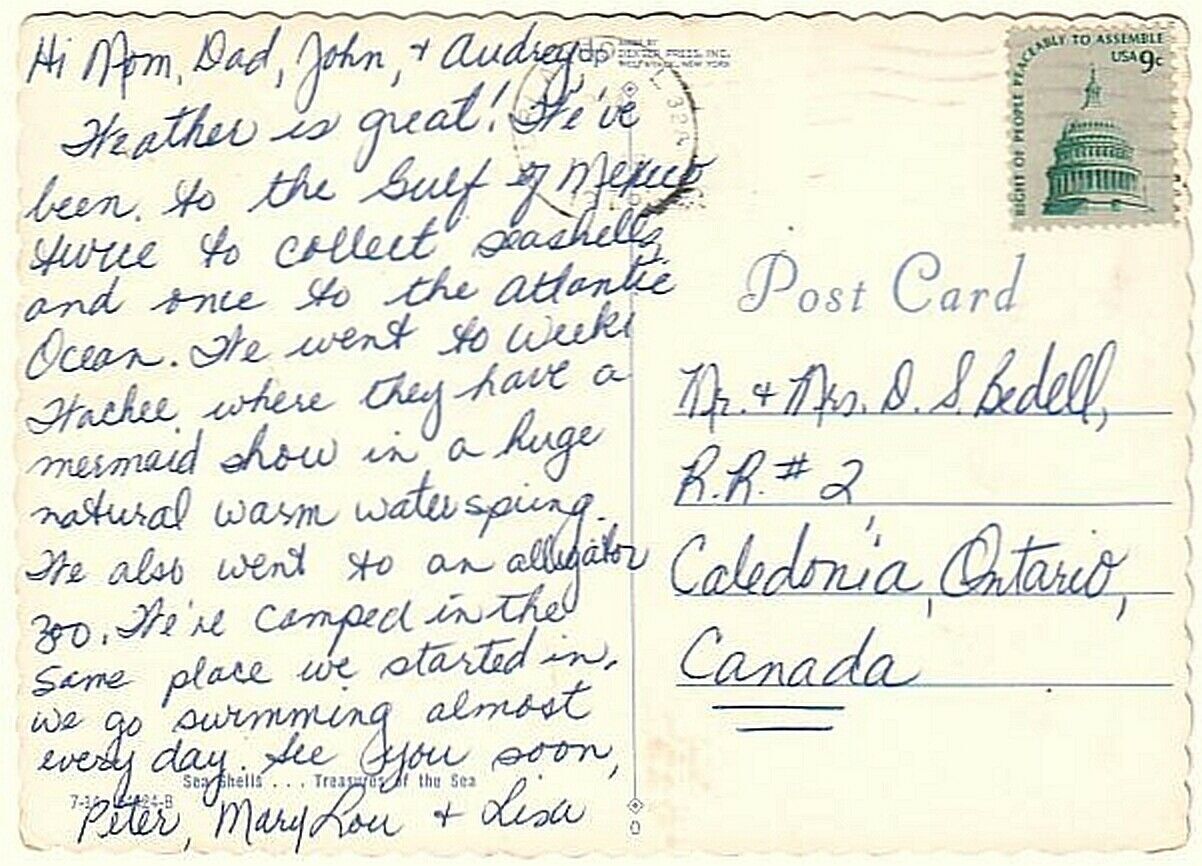 Hi Mom, Dad, John, + Audrey
Weather is great! We've
been to the Gulf of Mexico
twice to collect seashells
and once to the Atlantic
Ocean. We went to Weeki
Wachee where they have a
mermaid show in a huge
natural warm water spring.
We also went to an alligator
zoo. We're camped in the
same place we started in.
we go swimming almost
every day. See you soon,
Peter, Mary Lou + Lisa
Sea Shells . . . Treasures of the Sea
DEXTER PRESS, INC.
WEST NYACK, NEW YORK
RIGHT OF PEOPLE PEACEABLY TO ASSEMBLE
USA 9c
Post Card
Mr. + Mrs. D. S. Bedell,
R.R. # 2
Caledonia, Ontario,
Canada